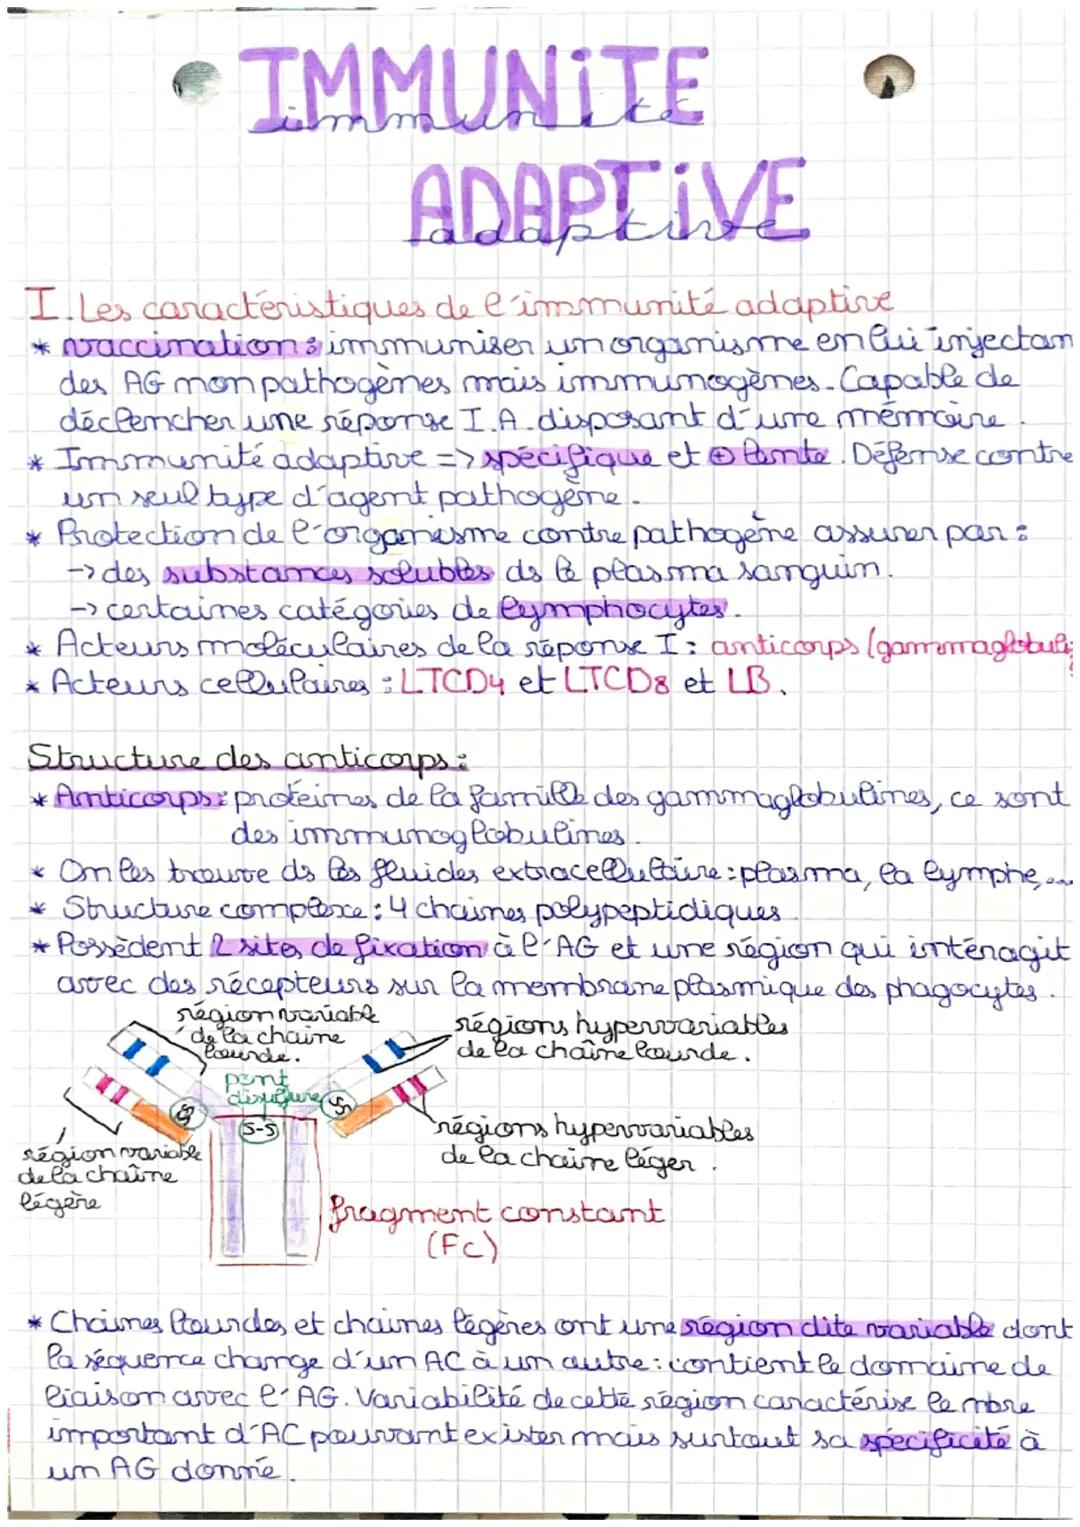 IMMUNITE
immunité
ADAPTIVE
adaptive
I. Les caractéristiques de l'immunité adaptive
* vaccination : immuniser un organisme en lui injectan
des AG non pathogènes mais immunogènes. Capable de
déclencher une réponse I.A. disposant d'une mémoire.
* Immunité adaptive => spécifique et ⊕ lente. Défense contre
un seul type d'agent pathogène.
* Protection de l'organisme contre pathogène assurer par :
-> des substances solubles ds le plasma sanguin.
-> certaines catégories de lymphocytes.
* Acteurs moléculaires de la réponse I : anticorps (gammaglobuli
* Acteurs cellulaires : LTCD4 et LTCD8 et LB.
Structure des anticorps :
* Anticorps : protéines de la famille des gammaglobulines, ce sont
des immunoglobulines.
* On les trouve ds les fluides extracellulaire : plasma, la lymphe,...
* Structure complexe : 4 chaines polypeptidiques
* Possèdent 2 sites de fixation à l'AG et une région qui interagit
avec des récepteurs sur la membrane plasmique des phagocytes.
région variable
de la chaine
lourde.
régions hypervariables
de la chaîne lourde.
pont
disulfure
S-S
S-S
S-S
régions hypervariables
de la chaine léger.
région variable
de la chaîne
légère
fragment constant
(Fc)
* Chaines lourdes et chaines légères ont une région dite variable dont
la séquence change d'un AC à un autre : contient le domaine de
liaison avec l'AG. Variabilité de cette région caractérise le nbre
important d'AC pouvant exister mais surtout sa spécificité à
un AG donné.